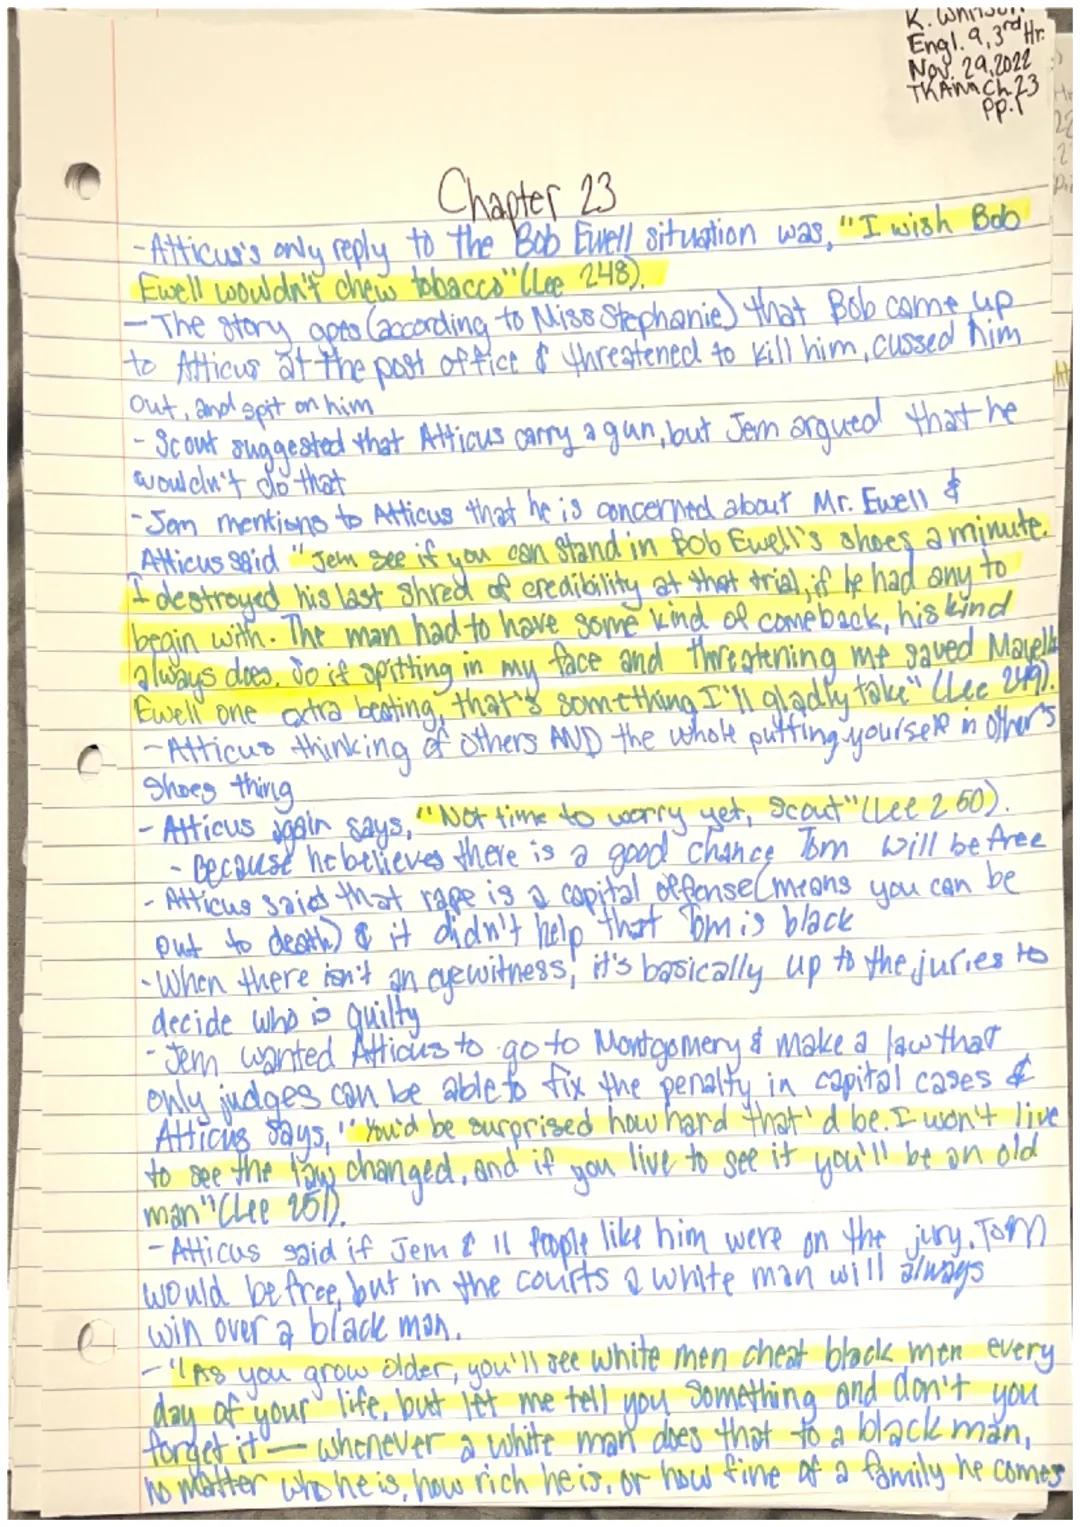 K. Whitson
Engl. 9, 3rd Hr.
Nov. 29, 2022
TKAM Ch. 23
pp. 1
Chapter 23
-Atticus's only reply to the Bob Ewell situation was, "I wish Bob
Ewell wouldn't chew tobacco" (Lee 248).
-The story goes (according to Miss Stephanie) that Bob came up
to Atticus at the post office & threatened to kill him, cussed him
out, and spit on him
- Scout suggested that Atticus carry a gun, but Jem argued that he
wouldn't do that
-Jem mentions to Atticus that he is concerned about Mr. Ewell &
Atticus said "Jem see if you can stand in Bob Ewell's shoes a minute.
I destroyed his last shred of credibility at that trial, if he had any to
begin with. The man had to have some kind of comeback, his kind
always does. So if spitting in my face and threatening me saved Mayella
Ewell one extra beating, that's something I'll gladly take" (Lee 249).
-Atticus thinking of others AND the whole putting yourself in other's
shoes thing
- Atticus again says, "Not time to worry yet, Scout" (Lee 250).
- Because he believes there is a good chance Tom will be free
- Atticus said that rape is a capital offense (means you can be
put to death) & it didn't help that Tom is black
-When there isn't an eyewitness, it's basically up to the juries to
decide who is guilty
- Jem wanted Atticus to go to Montgomery & make a law that
only judges can be able to fix the penalty in capital cases &
Atticus says, "You'd be surprised how hard that'd be. I won't live
to see the law changed, and if you live to see it you'll be an old
man" (Lee 251).
-Atticus said if Jem & 11 people like him were on the jury, Tom
would be free, but in the courts a white man will always
win over a black man.
-"As you grow older, you'll see white men cheat black men every
day of your life, but let me tell you something and don't you
forget it — whenever a white man does that to a black man,
no matter who he is, how rich he is, or how fine of a family he comes